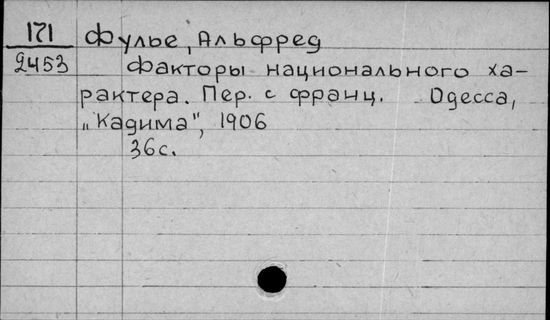 171 Фулье, Альфред
2453 Факторы национального ха-
рактера. Пер. с франц. Одесса,
„Кадима", 1906
36с.